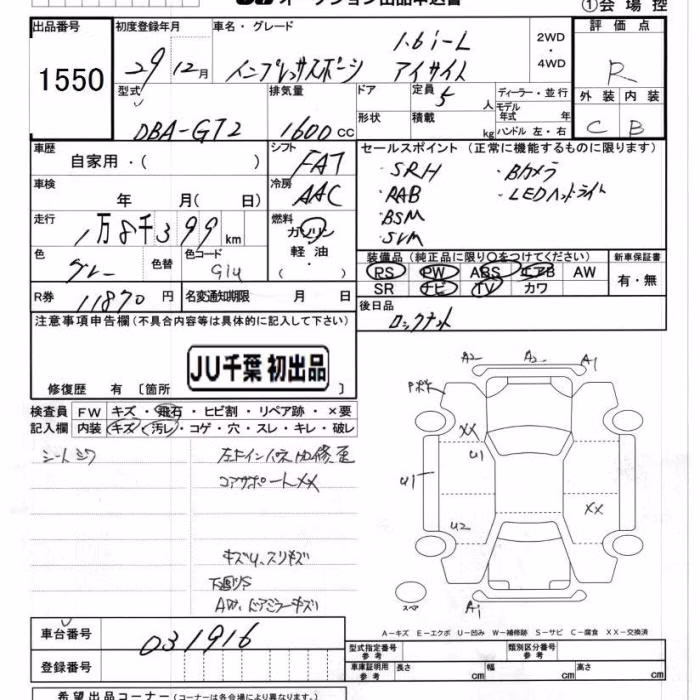 オークション出品申込書
①会場控
出品番号 1550
初度登録年月 29 12月
車名・グレード インプレッサスポーツ 1.6i-L アイサイト
2WD・4WD
評価点 R
外装 C 内装 B
型式 DBA-GT2
排気量 1600 cc
ドア 形状
定員 5 人
積載 kg
ディーラー・並行
モデル年式 年
ハンドル 左・右
車歴 自家用・( )
シフト FAT
車検 年 月( 日)
冷房 AAC
走行 1万8千399 km
燃料 ガソリン 軽油 ・ ( )
色 グレー 色替
色コード G1U
R券 11870 円
名変通知期限 月 日
セールスポイント (正常に機能するものに限ります)
・SRH ・Bカメラ
・RAB ・LEDヘッドライト
・BSM
・SVM
装備品 (純正品に限り○をつけてください)
PS PW ABS エアB AW
SR ナビ TV カワ
新車保証書 有・無
後日品
ロックナット
注意事項申告欄 (不具合内容等は具体的に記入して下さい)
JU千葉 初出品
修復歴 有 [箇所 ]
検査員記入欄
FW キズ・飛石・ヒビ割・リペア跡・×要
内装 キズ・汚レ・コゲ・穴・スレ・キレ・破レ
シートシワ
コアサポートXX
キズU、スリキズ
下廻りS
AW、ドアミラーキズ
A2 A2 A1
XX
U1
U1
U2
XX
スペア
A1
A－キズ E－エクボ U－凹み W－補修跡 S－サビ C－腐食 XX－交換済
車台番号 031916
登録番号
型式指定番号 参考
類別区分番号 参考
車庫証明用 参考 長さ cm 幅 cm 高さ cm
希望出品コーナー (コーナーは各会場により異なります。)